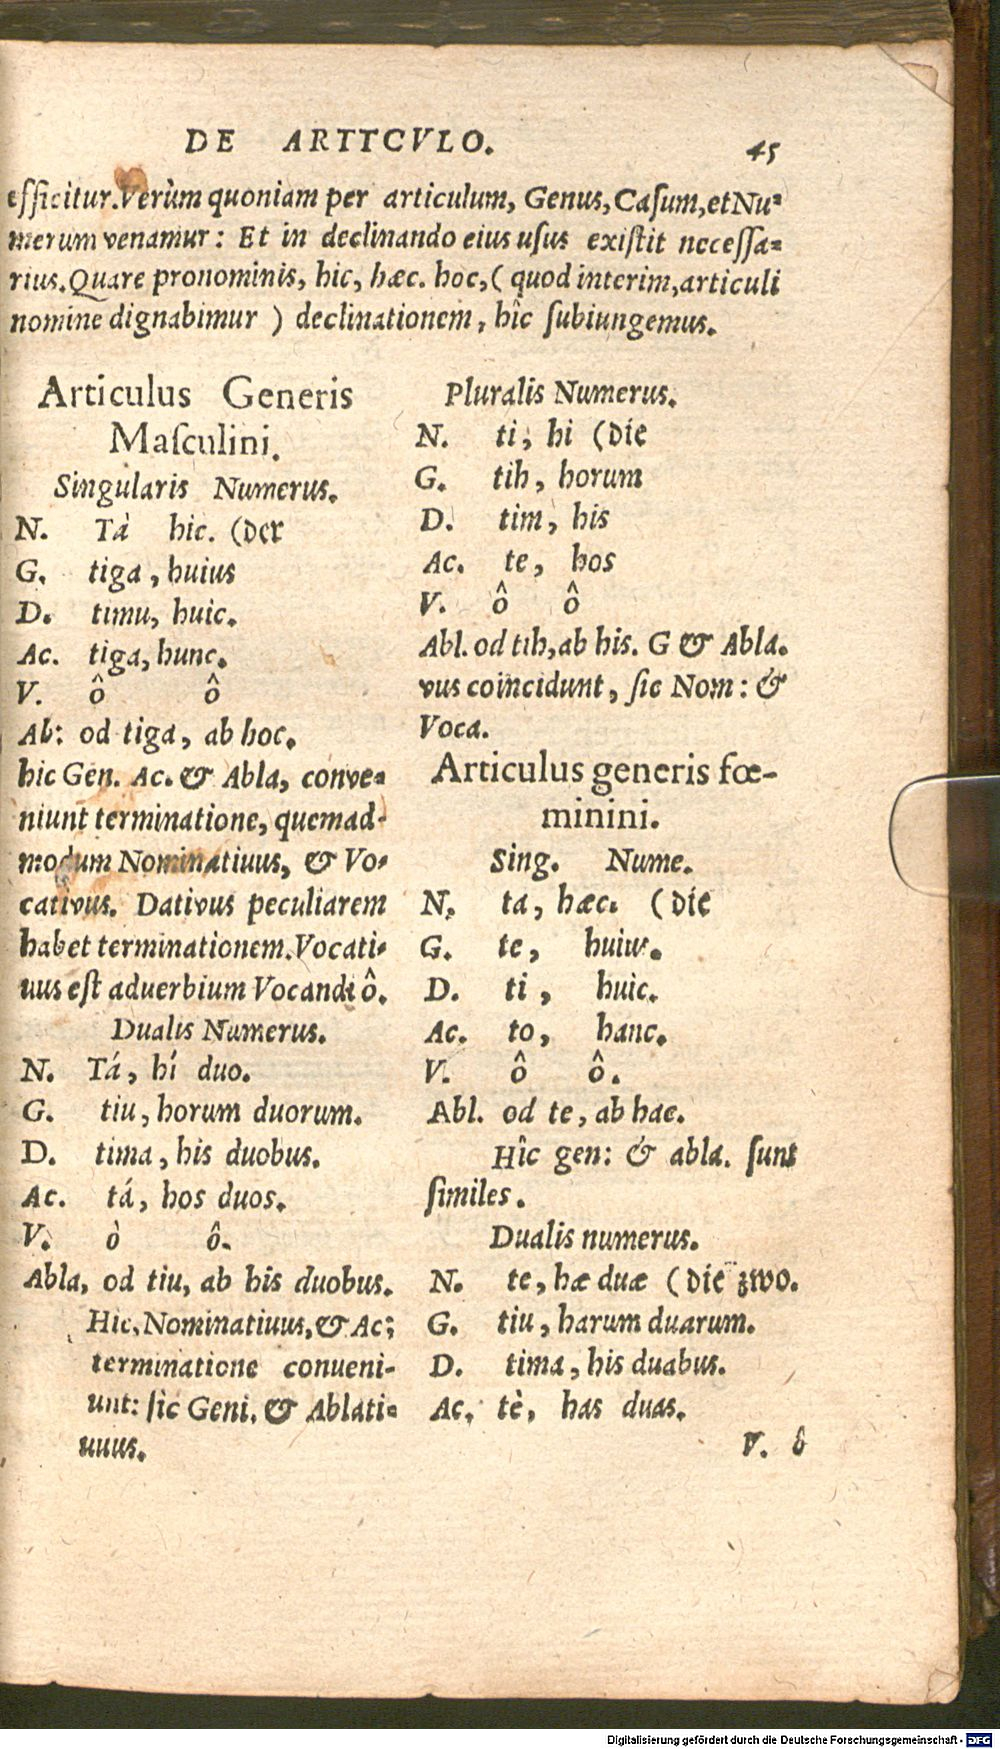 DE ARTTCVLO. 45
efficitur. Verùm quoniam per articulum, Genus, Casum, et Nu=
merum venamur: Et in declinando eius usus existit necessa=
rius. Quare pronominis, hic, hæc. hoc, ( quod interim, articuli
nomine dignabimur ) declinationem, hîc subiungemus.
Articulus Generis
Masculini.
Singularis Numerus.
N. Tà hic. (der
G. tiga, huius
D. timu, huic.
Ac. tiga, hunc.
V. ô ô
Ab: od tiga, ab hoc.
hic Gen. Ac. & Abla, conve=
niunt terminatione, quemad-
modum Nominatiuus, & Vo-
cativus. Dativus peculiarem
habet terminationem. Vocati-
uus est aduerbium Vocandi ô.
Dualis Numerus.
N. Tá, hí duo.
G. tiu, horum duorum.
D. tima, his duobus.
Ac. tá, hos duos.
V. ò ô.
Abla, od tiu, ab his duobus.
Hic, Nominatiuus, & Ac;
terminatione conueni-
unt: sìc Geni. & Ablati=
uuus.
Pluralis Numerus.
N. ti, hi (die
G. tih, horum
D. tim, his
Ac. te, hos
V. ô ô
Abl. od tih, ab his. G & Abla.
vus coincidunt, sic Nom: &
Voca.
Articulus generis fœ-
minini.
Sing. Nume.
N. ta, hæc. (die
G. te, huius.
D. ti, huic.
Ac. to, hanc.
V. ô ô.
Abl. od te, ab hac.
Hîc gen: & abla. sunt
similes.
Dualis numerus.
N. te, hæ duæ (die zwo.
G. tiu, harum duarum.
D. tima, his duabus.
Ac. tè, has duas.
V. ô
Digitalisierung gefördert durch die Deutsche Forschungsgemeinschaft - DFG